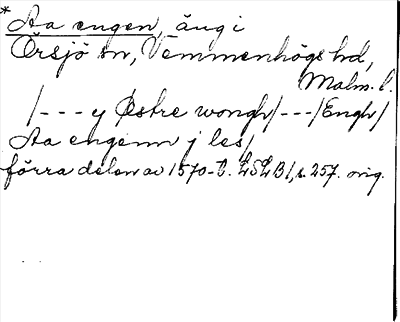 * Aa engen, äng i
Örsjö sn, Vemmenhögs hd,
Malm. l.
/--- y Østre wongh/---/Engh/
Aa engenn j les/
förra delen av 1570-t. LSLB I, s. 257. orig.